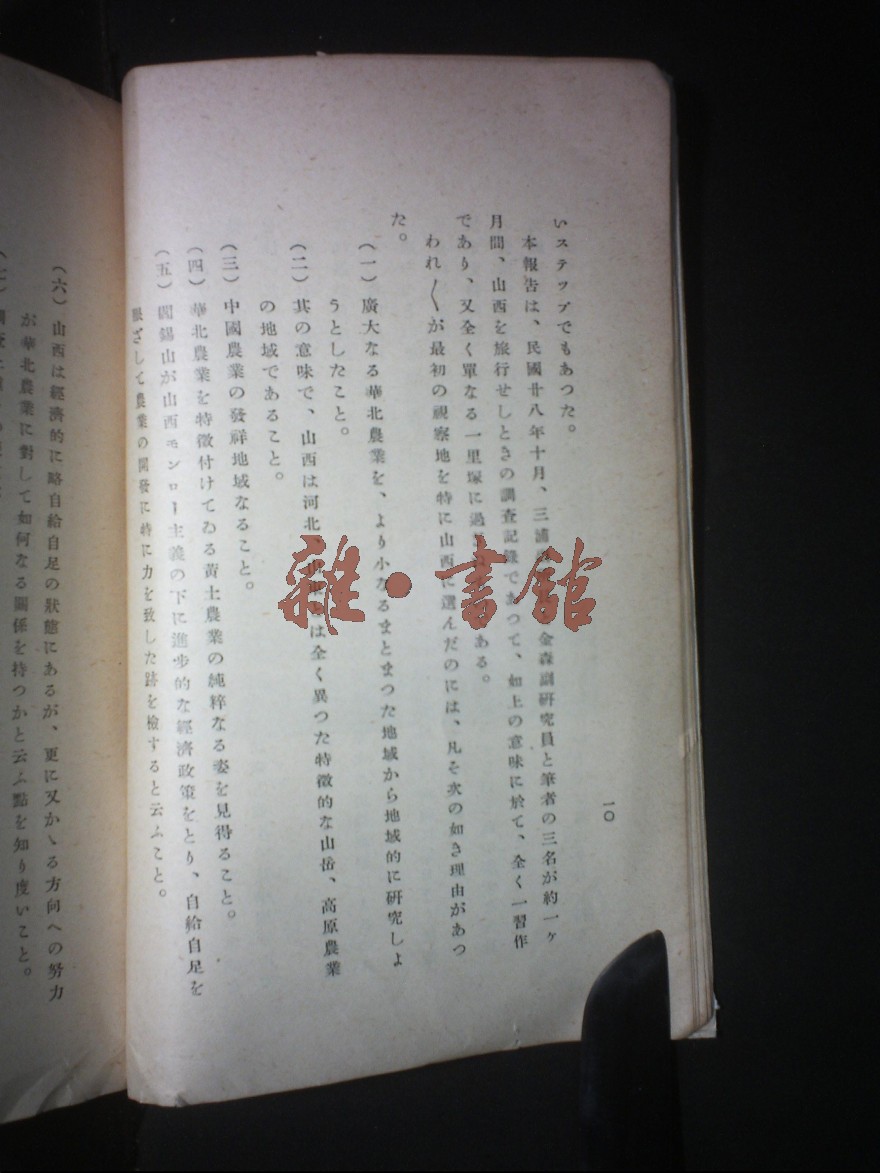 一〇
いステップでもあつた。
本報告は、民國廿八年十月、三浦 金森副研究員と筆者の三名が約一ヶ
月間、山西を旅行せしときの調査記錄であつて、如上の意味に於て、全く一習作
であり、又全く單なる一里塚に過 ある。
われ〱が最初の視察地を特に山西に選んだのには、凡そ次の如き理由があつ
た。
(一) 廣大なる華北農業を、より小なるまとまつた地域から地域的に研究しよ
うとしたこと。
(二) 其の意味で、山西は河北、 は全く異つた特徵的な山岳、高原農業
の地域であること。
(三) 中國農業の發祥地域なること。
(四) 華北農業を特徵付けてゐる黃土農業の純粹なる姿を見得ること。
(五) 閻錫山が山西モンロー主義の下に進步的な經濟政策をとり、自給自足を
眼ざして農業の開發に特に力を致した跡を檢すると云ふこと。
(六) 山西は經濟的に略自給自足の狀態にあるが、更に又かゝる方向への努力
が華北農業に對して如何なる關係を持つかと云ふ點を知り度いこと。
雜·書館